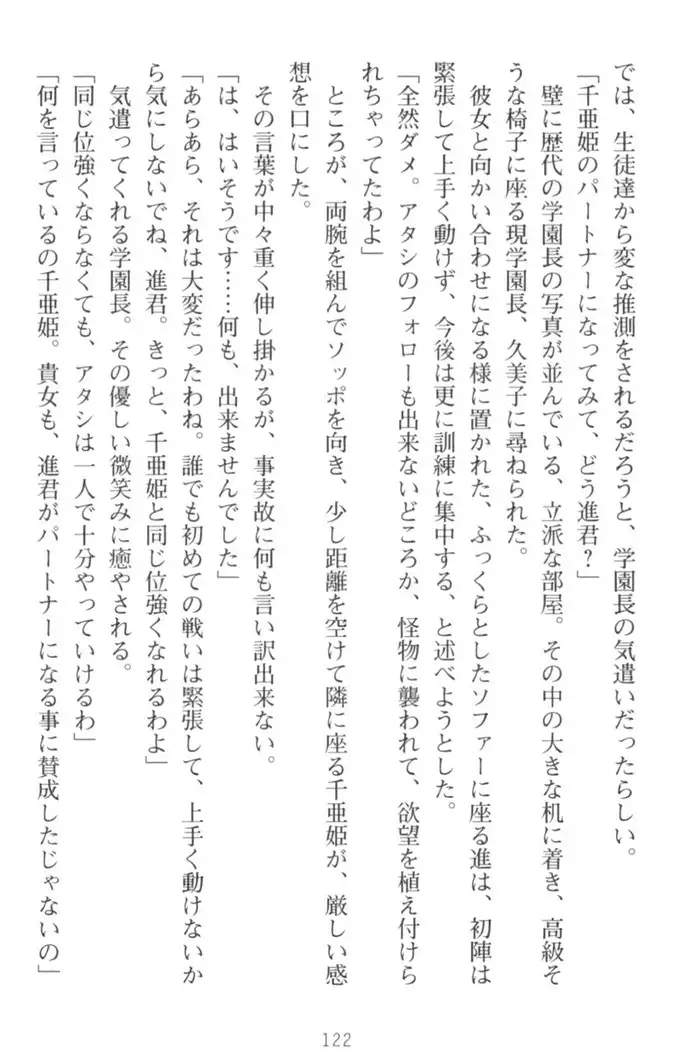 では、生徒達から変な推測をされるだろうと、学園長の気遣いだったらしい。
「千亜姫のパートナーになってみて、どう進君？」
壁に歴代の学園長の写真が並んでいる、立派な部屋。その中の大きな机に着き、高級そ
うな椅子に座る現学園長、久美子に尋ねられた。
彼女と向かい合わせになる様に置かれた、ふっくらとしたソファーに座る進は、初陣は
緊張して上手く動けず、今後は更に訓練に集中する、と述べようとした。
「全然ダメ。アタシのフォローも出来ないどころか、怪物に襲われて、欲望を植え付けら
れちゃってたわよ」
ところが、両腕を組んでソッポを向き、少し距離を空けて隣に座る千亜姫が、厳しい感
想を口にした。
その言葉が中々重く伸し掛かるが、事実故に何も言い訳出来ない。
「は、はいそうです……何も、出来ませんでした」
「あらあら、それは大変だったわね。誰でも初めての戦いは緊張して、上手く動けないか
ら気にしないでね、進君。きっと、千亜姫と同じ位強くなれるわよ」
気遣ってくれる学園長。その優しい微笑みに癒やされる。
「同じ位強くならなくても、アタシは一人で十分やっていけるわ」
「何を言っているの千亜姫。貴女も、進君がパートナーになる事に賛成したじゃないの」
122